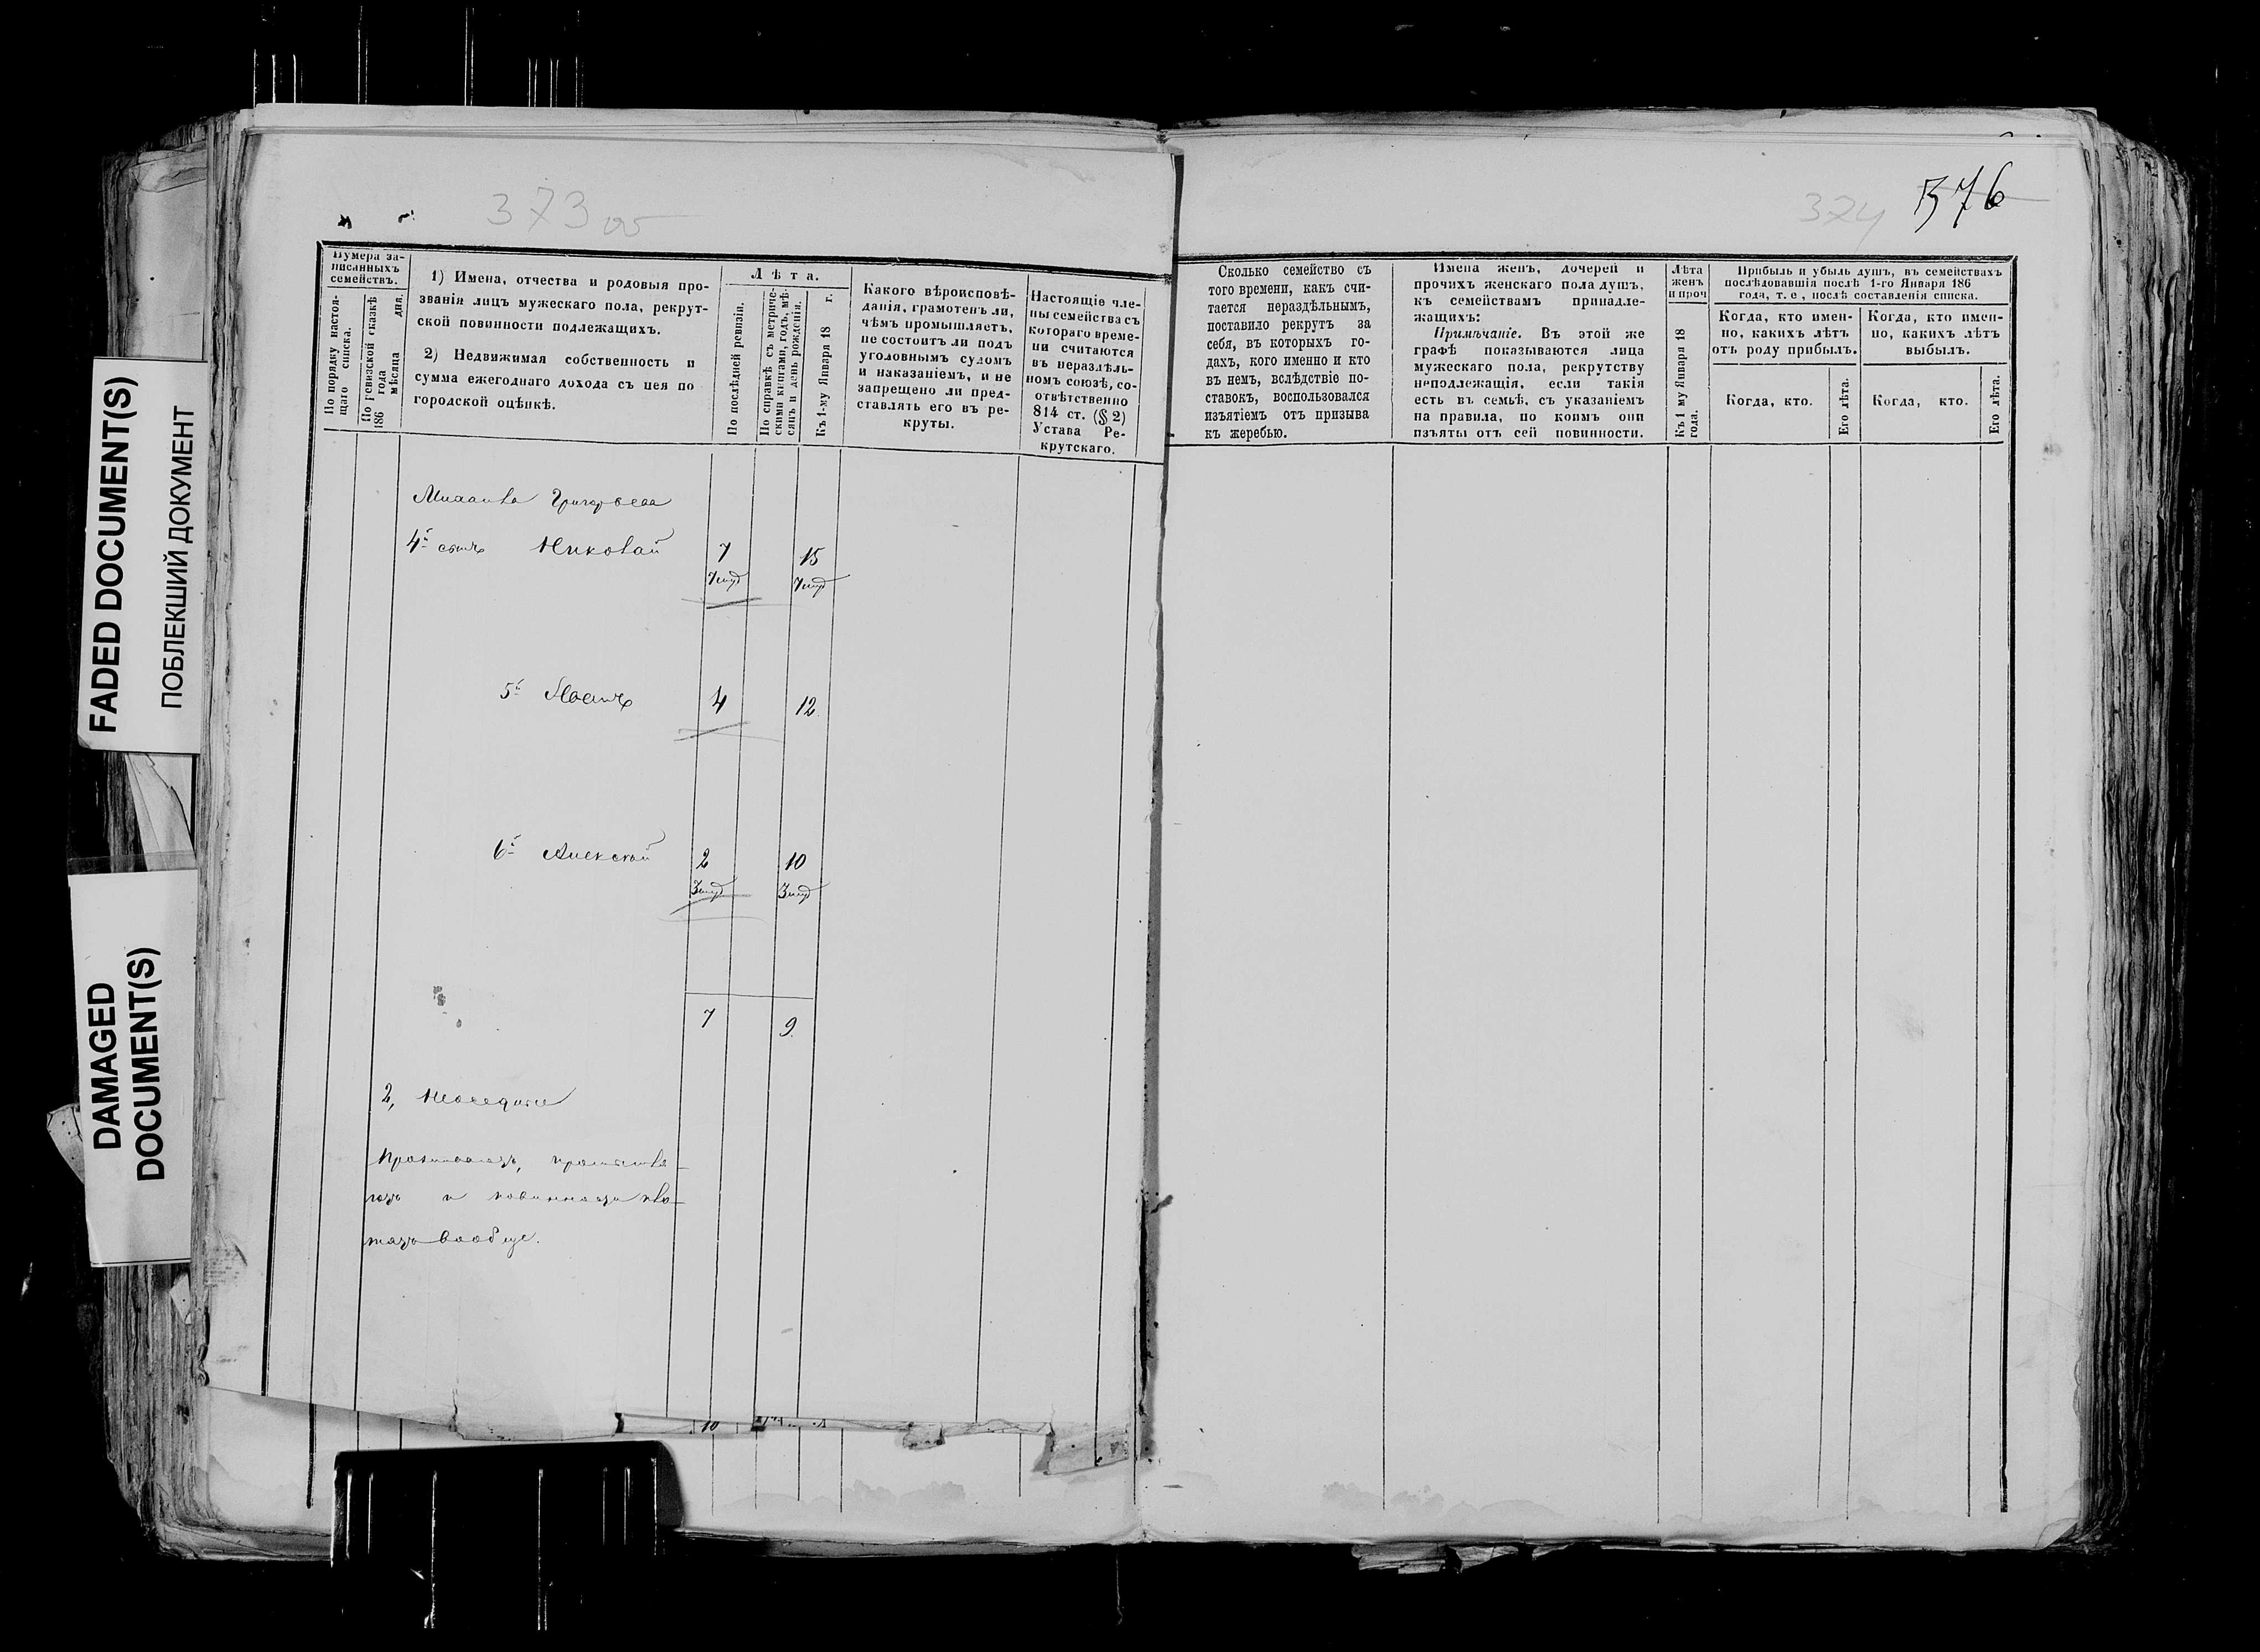 FADED DOCUMENT(S)
ПОБЛЕКШИЙ ДОКУМЕНТ
DAMAGED
DOCUMENT(S)
373 об
Нумера за-
писанныхъ
семействъ.
По порядку настоя-
щаго списка.
По ревизской сказкѣ
186 года
мѣсяца дня.
1) Имена, отчества и родовыя про-
званія лицъ мужескаго пола, рекрут-
ской повинности подлежащихъ.
2) Недвижимая собственность и
сумма ежегоднаго дохода съ нея по
городской оцѣнкѣ.
Лѣта.
По послѣдней ревизіи.
По справкѣ съ метриче-
скими книгами, годъ, мѣ-
сяцъ и день рожденія.
Къ 1-му Января 18 г.
Какого вѣроисповѣ-
данія, грамотенъ ли,
чѣмъ промышляетъ,
не состоитъ ли подъ
уголовнымъ судомъ
и наказаніемъ, и не
запрещено ли пред-
ставлять его въ ре-
круты.
Настоящіе чле-
ны семейства съ
котораго време-
ни считаются
въ нераздѣль-
номъ союзѣ, со-
отвѣтственно
814 ст. (§ 2)
Устава Ре-
крутскаго.
Михаила Григорьева
4й сынъ Николай 7 15
5й 4 12
6й Алексѣй 2 10
7 9
2,
и повинности пла-
вообще.
10
374 376
Сколько семейство съ
того времени, какъ счи-
тается нераздѣльнымъ,
поставило рекрутъ за
себя, въ которыхъ го-
дахъ, кого именно и кто
въ немъ, вслѣдствіе по-
ставокъ, воспользовался
изъятіемъ отъ призыва
къ жеребью.
Имена женъ, дочерей и
прочихъ женскаго пола душъ,
къ семействамъ принадле-
жащихъ:
Примѣчаніе. Въ этой же
графѣ показываются лица
мужескаго пола, рекрутству
неподлежащія, если такія
есть въ семьѣ, съ указаніемъ
на правила, по коимъ они
изъяты отъ сей повинности.
Лѣта
женъ
и проч
Къ 1 му Января 18
года.
Прибыль и убыль душъ, въ семействахъ
послѣдовавшія послѣ 1-го Января 186
года, т. е, послѣ составленія списка.
Когда, кто имен-
но, какихъ лѣтъ
отъ роду прибылъ.
Когда, кто имен-
но, какихъ лѣтъ
выбылъ.
Когда, кто.
Его лѣта.
Когда, кто.
Его лѣта.